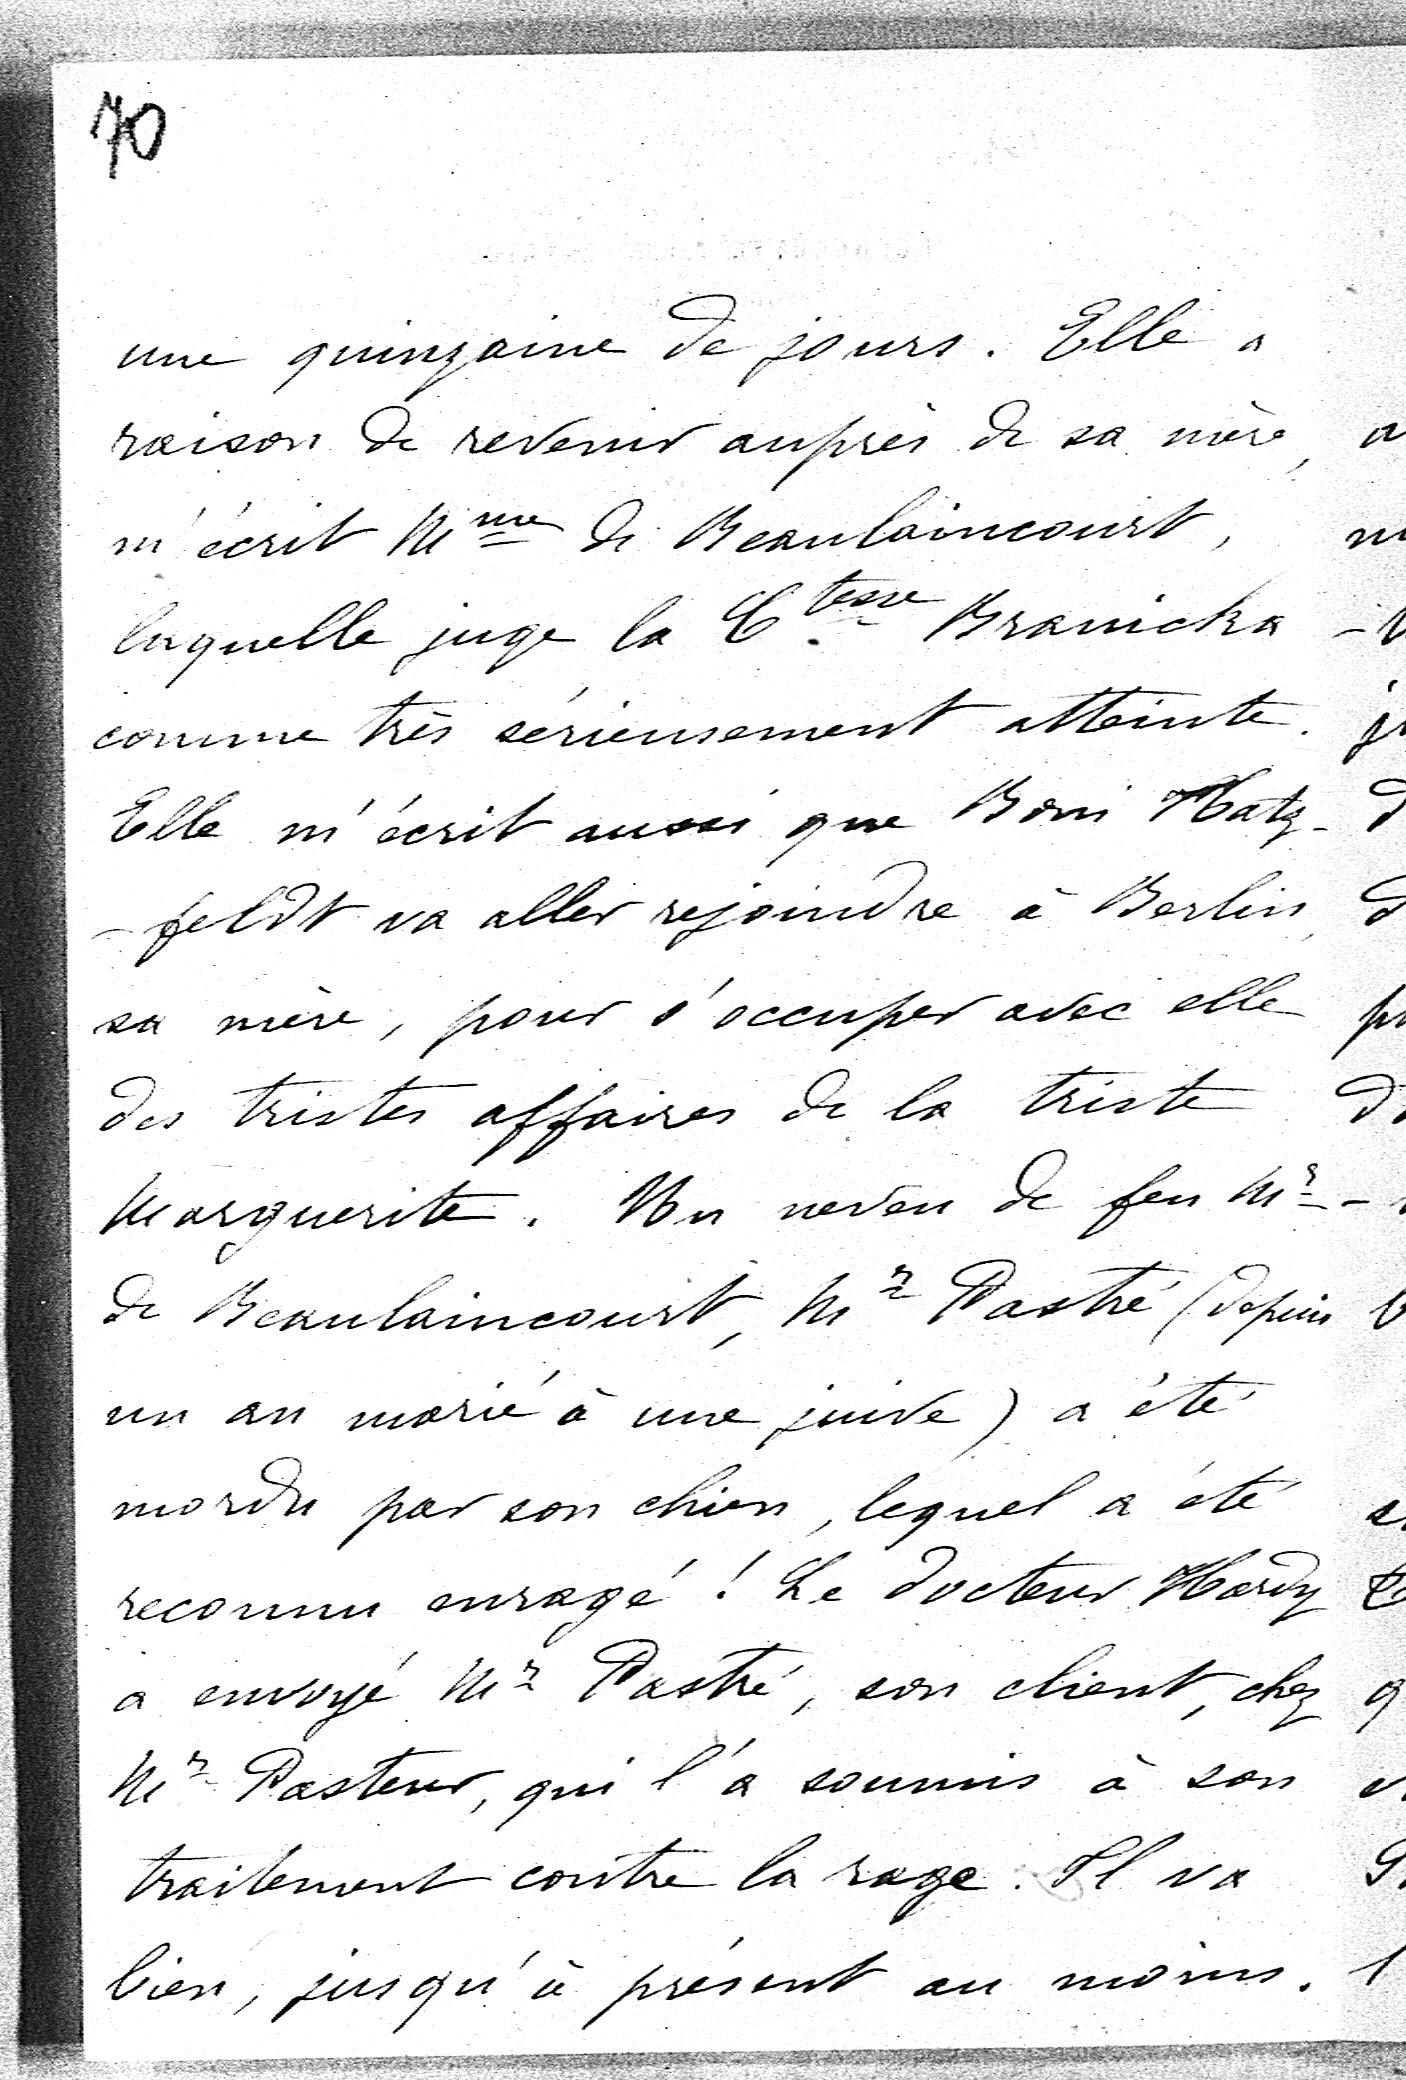 70
une quinzaine de jours. Elle a
raison de revenir auprès de sa mère,
m'écrit Mme de Beaulaincourt,
laquelle juge la Ctesse Branicka
comme très sérieusement atteinte.
Elle m'écrit aussi que Boni Hatz-
-feldt va aller rejoindre à Berlin,
sa mère, pour s'occuper avec elle
des tristes affaires de la triste
Marguerite. Un neveu de feu Mr
de Beaulaincourt, Mr Pastré (depuis
un an marié à une juive) a été
mordu par son chien, lequel a été
reconnu enragé! Le docteur Hardy
a envoyé Mr Pastré, son client, chez
Mr Pasteur, qui l'a soumis à son
traitement contre la rage. Il va
bien, jusqu'à présent au moins.